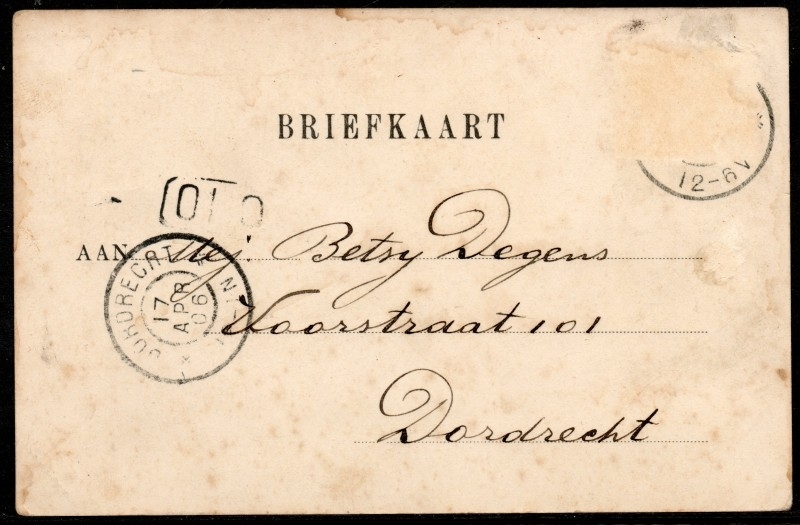 BRIEFKAART
12-6V
AAN Mej. Betsy Degens
Voorstraat 101
Dordrecht
DORDRECHT
17
APR
06